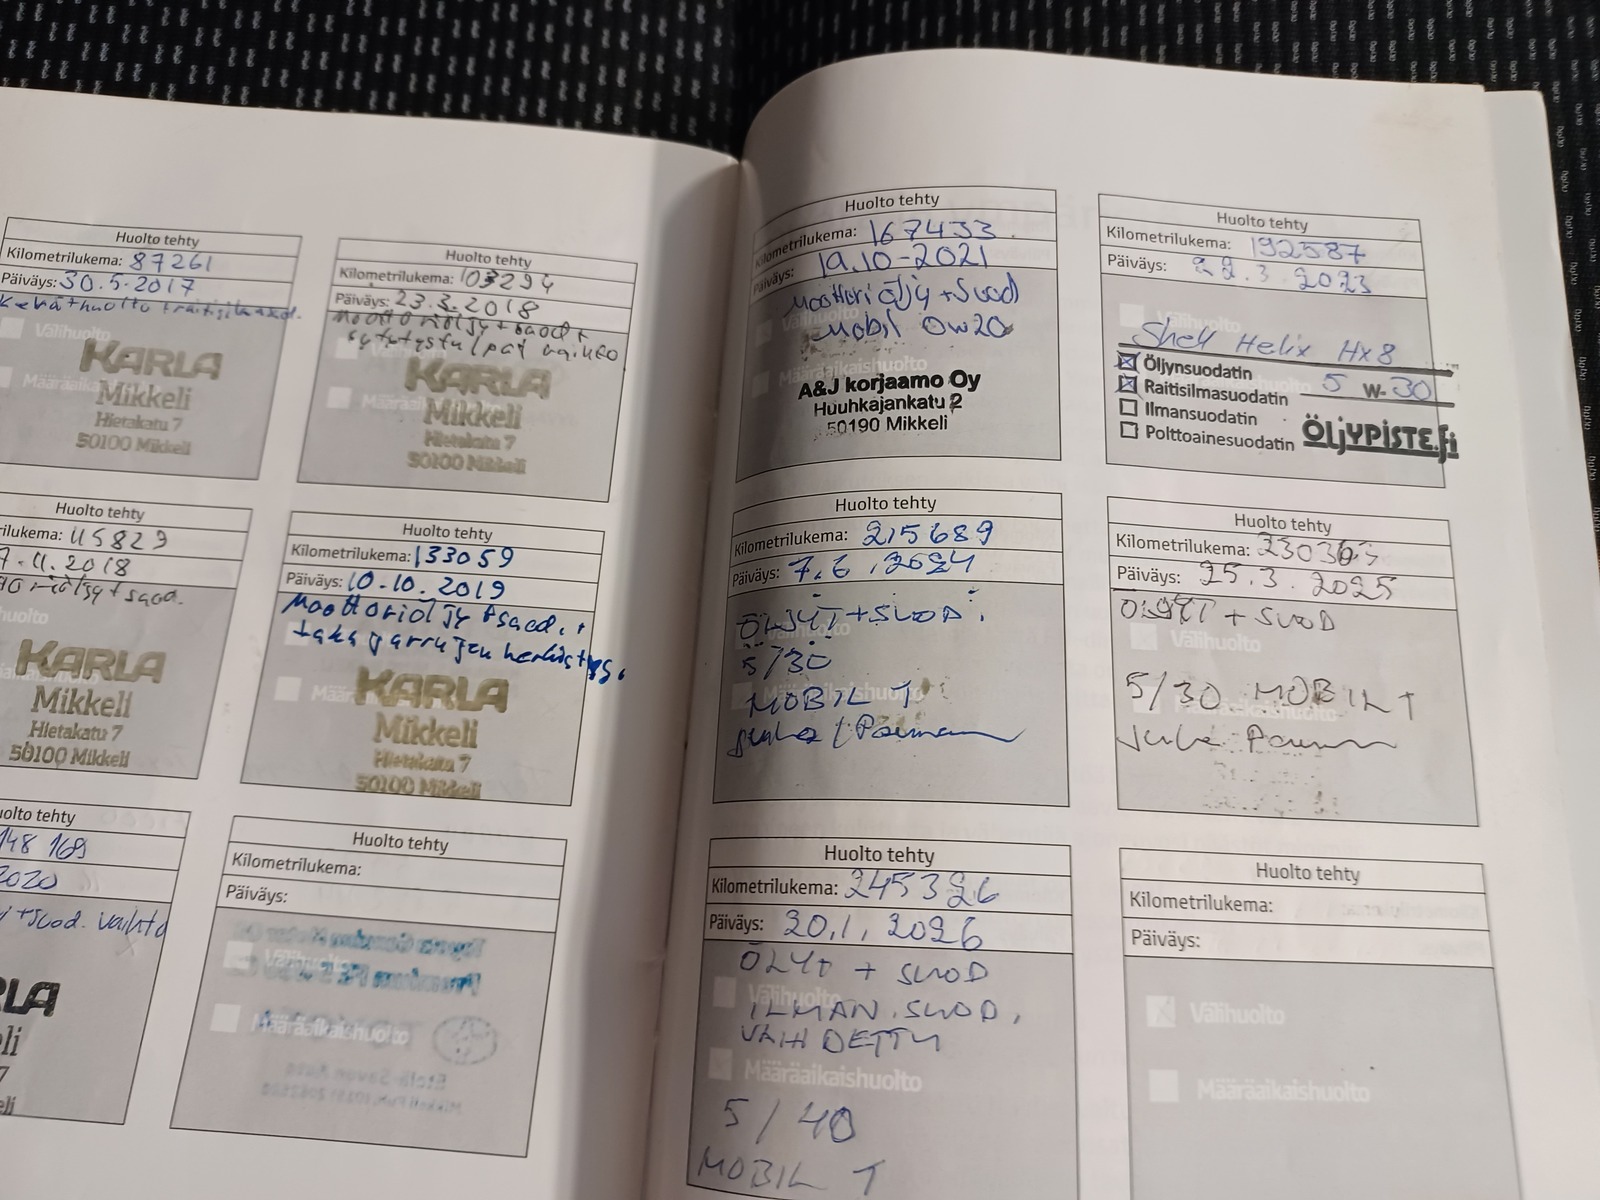 Huolto tehty
Kilometrilukema: 87261
Päiväys: 30.5.2017
Välihuolto
KARLA
Mikkeli
Hietakatu 7
50100 Mikkeli
Huolto tehty
Kilometrilukema: 103294
Päiväys: 23.3.2018
Moottoriöljy + suod +
KARLA
Mikkeli
Hietakatu 7
50100 Mikkeli
Huolto tehty
rilukema: 115829
7.11.2018
KARLA
Mikkeli
Hietakatu 7
50100 Mikkeli
Huolto tehty
Kilometrilukema: 133059
Päiväys: 10.10.2019
Moottoriöljy + suod. +
KARLA
Mikkeli
Hietakatu 7
50100 Mikkeli
uolto tehty
148 169
2020
+ suod. vaihto
RLA
eli
7
eli
Huolto tehty
Kilometrilukema:
Päiväys:
Välihuolto
Määräaikaishuolto
Huolto tehty
Kilometrilukema: 167433
Päiväys: 19.10-2021
Moottoriöljy + Suod
Mobil 0w20
Määräaikaishuolto
A&J korjaamo Oy
Huuhkajankatu 2
50190 Mikkeli
Huolto tehty
Kilometrilukema: 192587
Päiväys: 22.3.2023
Välihuolto
Shell Helix Hx8
Öljynsuodatin
Raitisilmasuodatin 5 W-30
Ilmansuodatin
Polttoainesuodatin ÖLJYPISTE.fi
Huolto tehty
Kilometrilukema: 215689
Päiväys: 7.6.2024
ÖLJYT + SUOD.
Välihuolto
5/30
Määräaikaishuolto
MOBIL 1
Huolto tehty
Kilometrilukema:
Päiväys: 25.3.2025
ÖLJYT + SUOD
Välihuolto
5/30 MOBIL 1
Määräaikaishuolto
Huolto tehty
Kilometrilukema: 245326
Päiväys: 20.1.2026
ÖLYT + SUOD
Välihuolto
ILMAN.SUOD.
VAIHDETTU
Määräaikaishuolto
5/40
MOBIL 1
Huolto tehty
Kilometrilukema:
Päiväys:
Välihuolto
Määräaikaishuolto